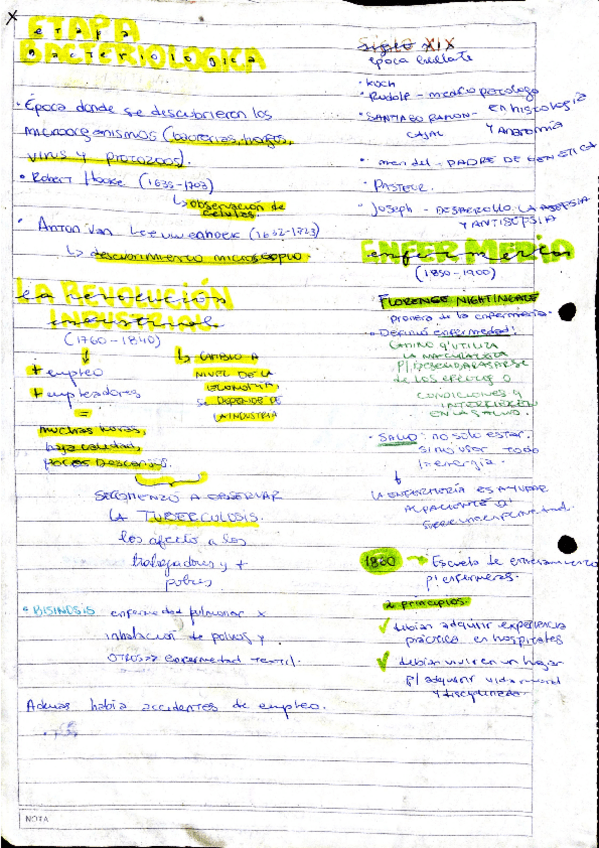 X
ETAPA
etapa
BACTERIOLOGICA
bacteriologica
• Época donde se descubrieron los
microorganismos (bacterias, hongos,
virus y protozoos).
• Robert Hooke (1635-1703)
↳ observación de
células.
• Anton Van Leeuwenhoek (1632-1723)
↳ descubrimiento microscopio.
LA REVOLUCIÓN
la revolución
INDUSTRIAL
industrial
(1760-1840)
+ empleo
+ empleadores
=
muchas horas,
baja calidad,
pocos descansos.
↳ CAMBIO A
NIVEL DE LA
ECONOMÍA,
se DEPENDE DE
LA INDUSTRIA
SE COMENZÓ A OBSERVAR
LA TUBERCULOSIS.
los afecto a los
trabajadores y +
pobres
• BISINOSIS enfermedad pulmonar x
inhalación de polvos y
OTROS => enfermedad textil.
Ademas había accidentes de empleo.
siglo XIX
SIGLO XIX
época brillante
• KOCH
• Rudolf - medico patologo
• SANTIAGO RAMON - EN histología
CAJAL Y ANATOMÍA
• mendel - PADRE DE GENETICA
• PASTEUR.
• Joseph - DESARROLLO LA ASEPSIA
Y ANTISEPSIA
ENFERMERIA
enfermeria
(1850-1900)
FLORENCE NIGHTINGALE
pionera de la enfermería.
• Definió enfermedad:
CAMINO q' UTILIZA
LA NATURALEZA
P/ DESEMBARAZARSE
de los efectos o
CONDICIONES q'
INTERFIEREN
EN LA SALUD.
• SALUD: no solo estar.
sino usar TODO
la energía.
LA ENFERMERÍA ES AYUDAR
AL PACIENTE
1860 → Escuela de entrenamiento
p/ enfermeras.
2 principios.
✓ debían adquirir experiencia
práctica en hospitales
✓ debían vivir en un hogar
p/ adquirir vida moral
y disciplinada.
NOTA